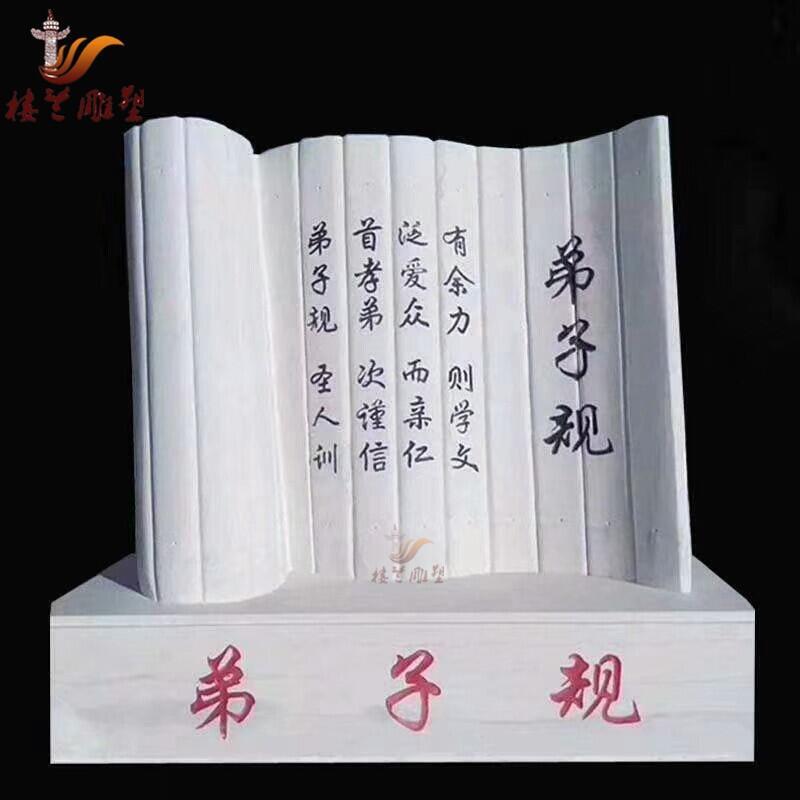 楼兰雕塑
弟子规
弟子规 圣人训
首孝弟 次谨信
泛爱众 而亲仁
有余力 则学文
楼兰雕塑
弟子规